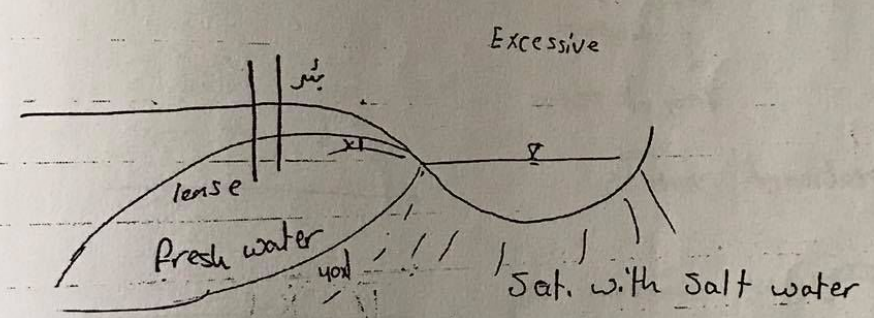 Excessive
بئر
x
lense
fresh water
40x
Sat. with Salt water